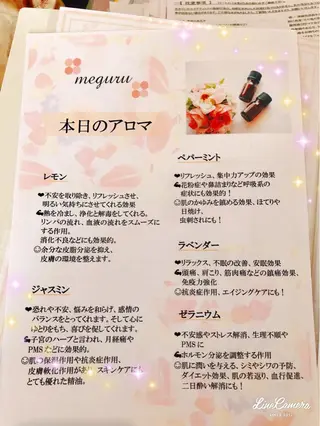 meguru
本日のアロマ
レモン
❤不安を取り除き、リフレッシュさせ、
明るい気持ちにさせてくれる効果
💪熱を冷まし、浄化と解毒をしてくれる。
リンパの流れ、血液の流れをスムーズに
する作用。
消化不良などにも効果的。
☺余分な皮脂分泌を抑え、
皮膚の環境を整えます。
ジャスミン
❤恐れや不安、悩みを和らげ、感情の
バランスをとってくれます。そして心に
ゆとりをもち、喜びを促してくれます。
💪子宮のハーブと言われ、月経痛や
PMSなどに効果的。
☺肌の保湿作用や抗炎症作用、
皮膚軟化作用があり、スキンケアにも
とても優れた精油。
ペパーミント
❤リフレッシュ、集中力アップの効果
💪花粉症や鼻詰まりなど呼吸系の
症状にも効果的!
☺肌のかゆみを鎮める効果、ほてりや
日焼け、
虫刺されにも!
ラベンダー
❤リラックス、不眠の改善、安眠効果
💪頭痛、肩こり、筋肉痛などの鎮痛効果、
免疫力強化
☺抗炎症作用、エイジングケアにも!
ゼラニウム
❤不安感やストレス解消、生理不順や
PMSに
💪ホルモン分泌を調整する作用
☺肌に潤いを与える、シミやシワの予防、
ダイエット効果、肌の若返り、血行促進、
二日酔い解消にも!
LINE Camera